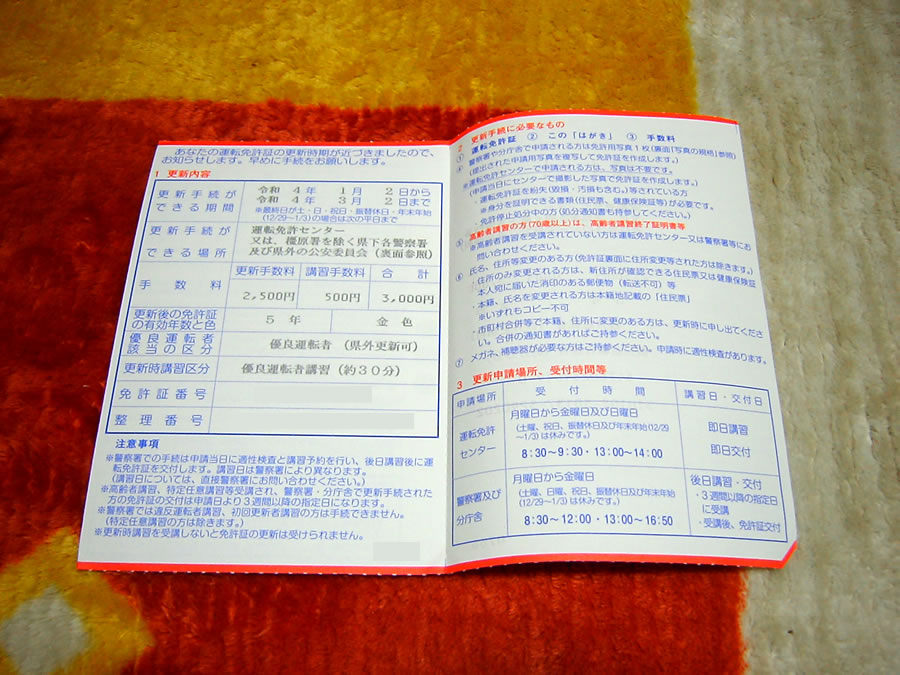 あなたの運転免許証の更新時期が近づきましたので、
お知らせします。早めに手続をお願いします。
1 更新内容
更新手続が
できる期間
令和 4年 1月 2日から
令和 4年 3月 2日まで
※最終日が土・日・祝日・振替休日・年末年始
(12/29~1/3)の場合は次の平日まで
更新手続が
できる場所
運転免許センター
又は、橿原署を除く県下各警察署
及び県外の公安委員会(裏面参照)
手数料
更新手数料 講習手数料 合計
2,500円 500円 3,000円
更新後の免許証
の有効年数と色
5年 金色
優良運転者
該当の区分
優良運転者 (県外更新可)
更新時講習区分
優良運転者講習(約30分)
免許証番号
整理番号
注意事項
※警察署での手続は申請当日に適性検査と講習予約を行い、後日講習後に運
転免許証を交付します。講習日は警察署により異なります。
(講習日については、直接警察署にお問い合わせください。)
※高齢者講習、特定任意講習等受講され、警察署・分庁舎で更新手続された
方の免許証の交付は申請日より3週間以降の指定日になります。
※警察署では違反運転者講習、初回更新者講習の方は手続できません。
(特定任意講習の方は除きます。)
※更新時講習を受講しないと免許証の更新は受けられません。
2 更新手続に必要なもの
① 運転免許証 ② この「はがき」 ③ 手数料
④ 警察署や分庁舎で申請される方は免許用写真1枚(裏面「写真の規格」参照)
(提出された申請用写真を複写して免許証を作成します。)
※運転免許センターで申請される方は、写真は不要です。
(申請当日にセンターで撮影した写真で免許証を作成します。)
・運転免許証を紛失(毀損・汚損も含む。)等されている方
※身分を証明できる書類(住民票、健康保険証等)が必要です。
・免許停止処分中の方(処分通知書も持参してください。)
⑤ 高齢者講習の方(70歳以上)は、高齢者講習終了証明書等
※高齢者講習を受講されていない方は運転免許センター又は警察署等にお
問い合わせください。
⑥ 氏名、住所等変更のある方(免許証裏面に住所変更等された方は除きます。)
・住所のみ変更される方は、新住所が確認できる住民票又は健康保険証
本人宛に届いた消印のある郵便物(転送不可)等
・本籍、氏名を変更される方は本籍地記載の「住民票」
※いずれもコピー不可
・市町村合併等で本籍、住所に変更のある方は、更新時に申し出てくださ
い。合併の通知書があればご持参ください。
⑦ メガネ、補聴器が必要な方はご持参ください。申請時に適性検査があります。
3 更新申請場所、受付時間等
申請場所 受付時間 講習日・交付日
運転免許
センター
月曜日から金曜日及び日曜日
(土曜、祝日、振替休日及び年末年始(12/29
~1/3)は休みです。)
8:30~9:30・13:00~14:00
即日講習
即日交付
警察署及び
分庁舎
月曜日から金曜日
(土曜、日曜、祝日、振替休日及び年末年始
(12/29~1/3)は休みです。)
8:30~12:00・13:00~16:50
後日講習・交付
・3週間以降の指定日
に受講
・受講後、免許証交付